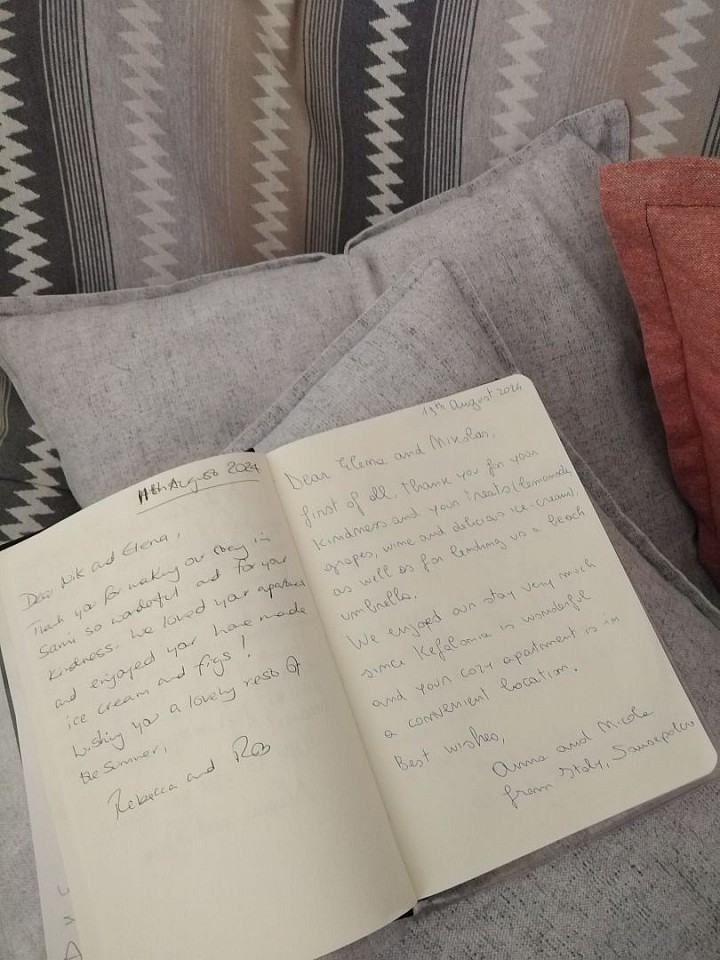 11th August 2024
Dear Nik and Elena,
Thank you for making our stay in
Sami so wonderful and for your
kindness. We loved your apartment
and enjoyed your home made
ice cream and figs!
Wishing you a lovely rest of
the summer,
Rebecca and Rob
13th August 2024
Dear Elena and Nikolas,
first of all, thank you for your
kindness and your treats (lemonade,
grapes, wine and delicious ice-cream),
as well as for lending us a beach
umbrella.
We enjoyed our stay very much
since Kefalonia is wonderful
and your cozy apartment is in
a convenient location.
Best wishes,
Anna and Nicola
from Italy, Sansepolcro